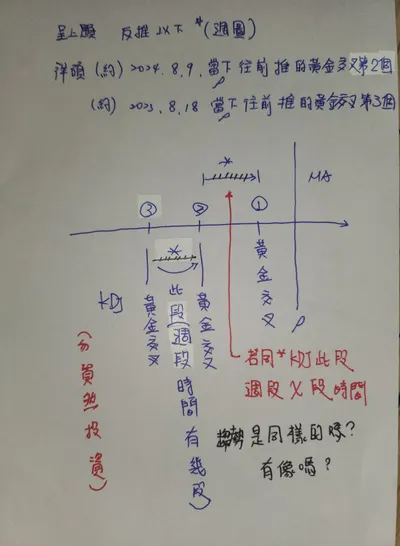 呈上題 反推以下 *(週圖)
詳順(約)2024.8.9.當下往前推的黃金交叉第2個
P
(約)2023.8.18 當下往前推的黃金交叉第3個
P
*
MA
③ ② ① 
*
KDJ
黃金交叉
此段(週段)時間有幾段
黃金交叉
黃金交叉
P
若同*KDJ此段
週段X段時間
趨勢是同樣的嗎?
有像嗎?